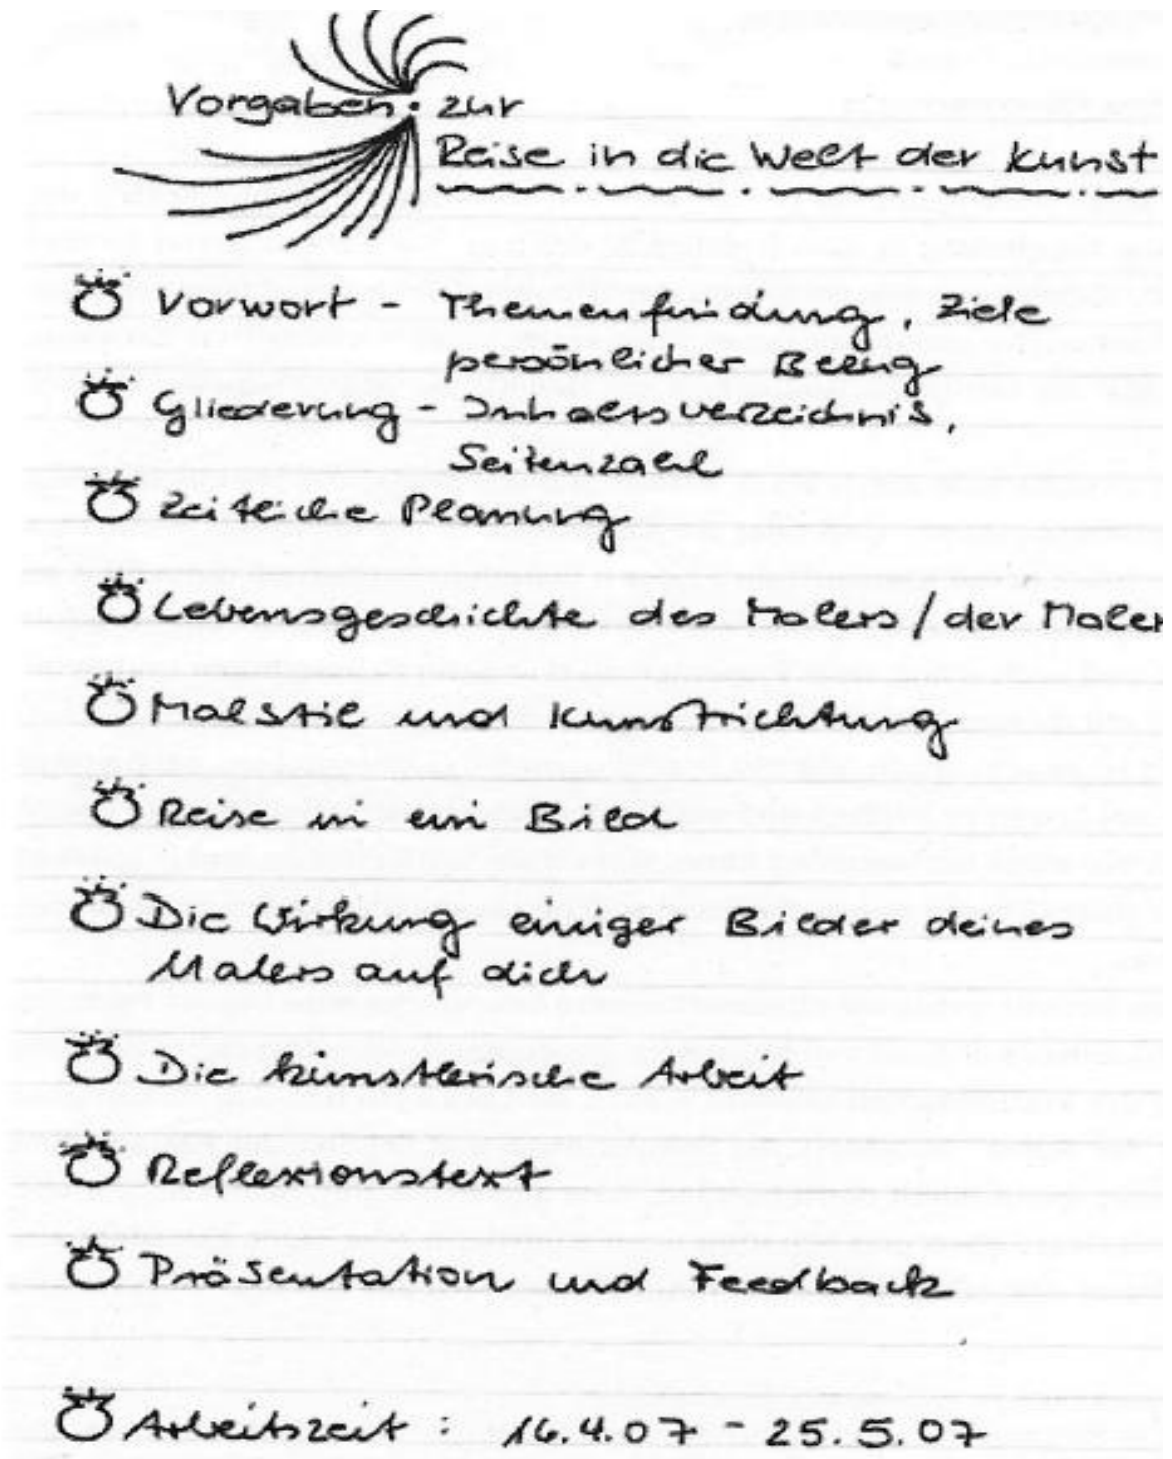 Vorgaben: zur
Reise in die Welt der Kunst
Vorwort - Themenfindung, Ziele
persönlicher Bezug
Gliederung - Inhaltsverzeichnis,
Seitenzahl
Zeitliche Planung
Lebensgeschichte des Malers / der Maler
Malstil und Kunstrichtung
Reise in ein Bild
Die Wirkung einiger Bilder deines
Malers auf dich
Die künstlerische Arbeit
Reflexionstext
Präsentation und Feedback
Arbeitszeit : 16.4.07 - 25.5.07